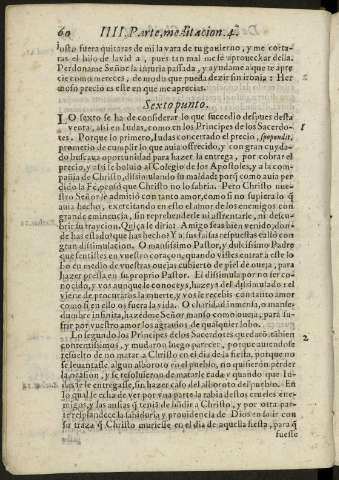 60 IIII. Parte, meditacion. 4.
justo fuera quitaras de mi la vara de tu gouierno, y me cortaras
el hilo de la vida, pues tan mal me sè aprouechar della.
Perdoname Señor la injuria passada, y ayudame a que te aprecie
como mereces, de modo que pueda dezir sin ironia: Hermoso
precio es este en que me aprecias.
Sexto punto.
LO sexto se ha de considerar lo que succedio despues desta
venta, assi en Iudas, como en los Principes de los Sacerdotes.
Porque lo primero, Iudas concertado el precio, spopondit,
prometio de cumplir lo que auia offrecido, y con gran cuydado
buscaua oportunidad para hazer la entrega, por cobrar el
precio, y assi se boluio al Colegio de los Apostoles, y a la compañia
de Christo, dissimulando su maldad: porq̃ como auia perdido
la Fè, pensò que Christo no lo sabria. Pero Christo nuestro
Señor le admitiò con tanto amor, como si no supiera lo q̃
auia hecho, exercitando en esto el amor de los enemigos con
grande eminencia, sin reprehenderle ni affrentarle, ni descubrir
su traycion. Quiça le diria: Amigo seas bien venido, donde
has estado? que has hecho? Y a sus falsas respuestas callò con
gran dissimulacion. O mansissimo Pastor, y dulcissimo Padre
que sentistes en vuestro coraçon, quando vistes entrar a este lobo
en medio de vuestras ouejas cubierto de piel de oueja, para
hazer pressa en su proprio Pastor. El dissimula por no ser conocido,
y vos aunque le conoceys, hazeys del dissimulado: el
viene de procuraros la muerte, y vos le recebis con tanto amor
como si en ello os fuera la vida. O charidad inmensa, o mansedumbre
infinita, hazedme Señor manso como oueja, para sufrir
por vuestro amor los agrauios de qualquier lobo.
Lo segundo los Principes de los Sacerdotes quedarõ tãbien
contentissimos, y mudaron luego parecer, porque auiendose
resuelto de no matar a Christo en el dia de la fiesta, porque no
se leuantasse algun alboroto en el pueblo, no quisieron perder
la ocasion, y se resoluieron de matarle cada y quando que Iudas
se le entregasse, sin hazer caso del alboroto del pueblo. En
lo qual se echa de ver por vna parte la rabia destos crueles enemigos,
y las ansias q̃ teniã de hũdir a Christo, y por otra parte
resplandece la sabiduria y prouidencia de Dios en salir con
su traza q̃ Christo muriesse en el dia de aquella fiesta, para q̃
fuesse
1
2